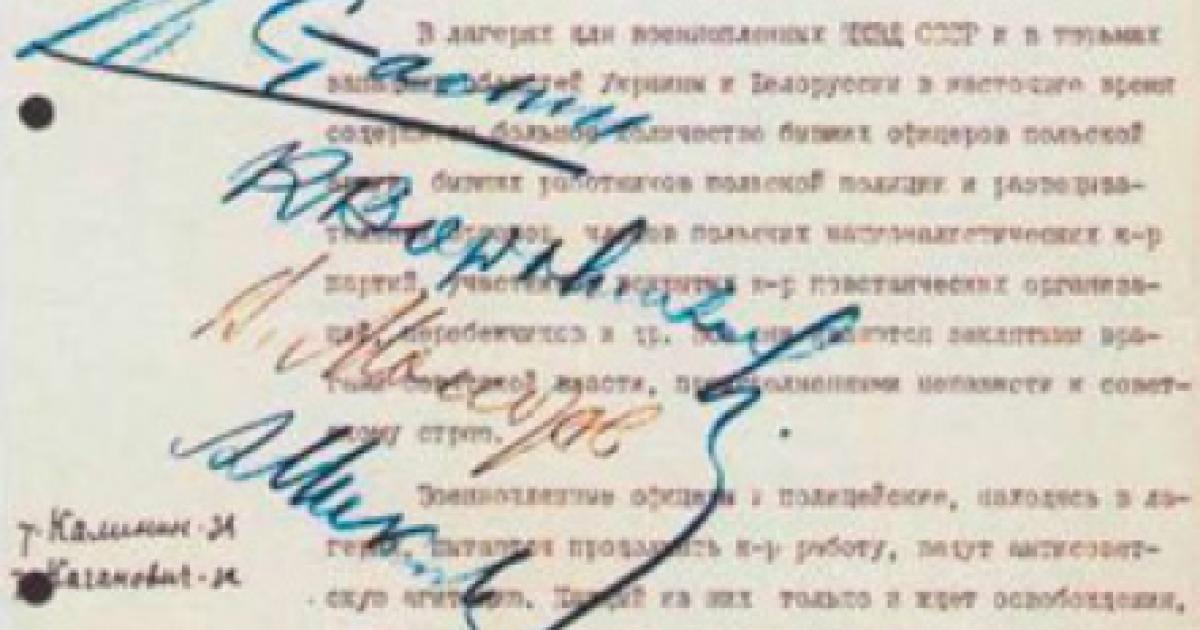 В лагерях для военнопленных НКВД СССР и в тюрьмах
западных областей Украины и Белоруссии в настоящее время
содержится большое количество бывших офицеров польской
бывших работников польской полиции и разведыва-
членов польских националистических к-р
партий, участников вскрытых к-р повстанческих организа-
ций, перебежчиков и др. Все они являются заклятыми вра-
гами советской власти, преисполненными ненависти к совет-
скому строю.
Военнопленные офицеры и полицейские, находясь в ла-
герях, пытаются продолжать к-р работу, ведут антисовет-
скую агитацию. Каждый из них только и ждет освобождения,
И. Сталин
К Ворошилов
В. Молотов
А Мик
т. Калинин - за
т. Каганович - за